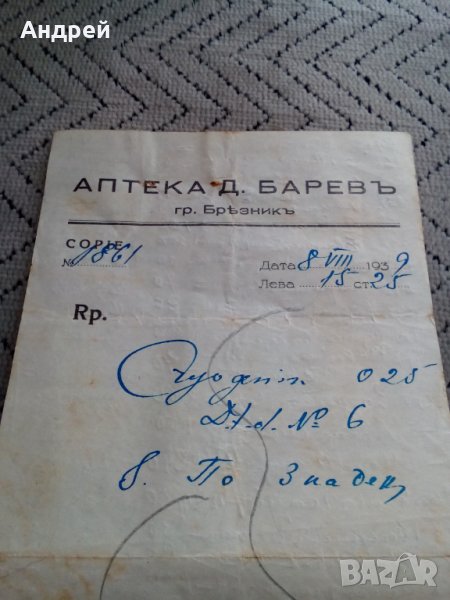 Андрей
АПТЕКА Д. БАРЕВЪ
гр. Брѣзникъ
COPIE
№ 1861
Дата 8 VIII 1939
Лева 15 ст. 25
Rp.
025
D.t.d. № 6
По 3 на день
BAZAR